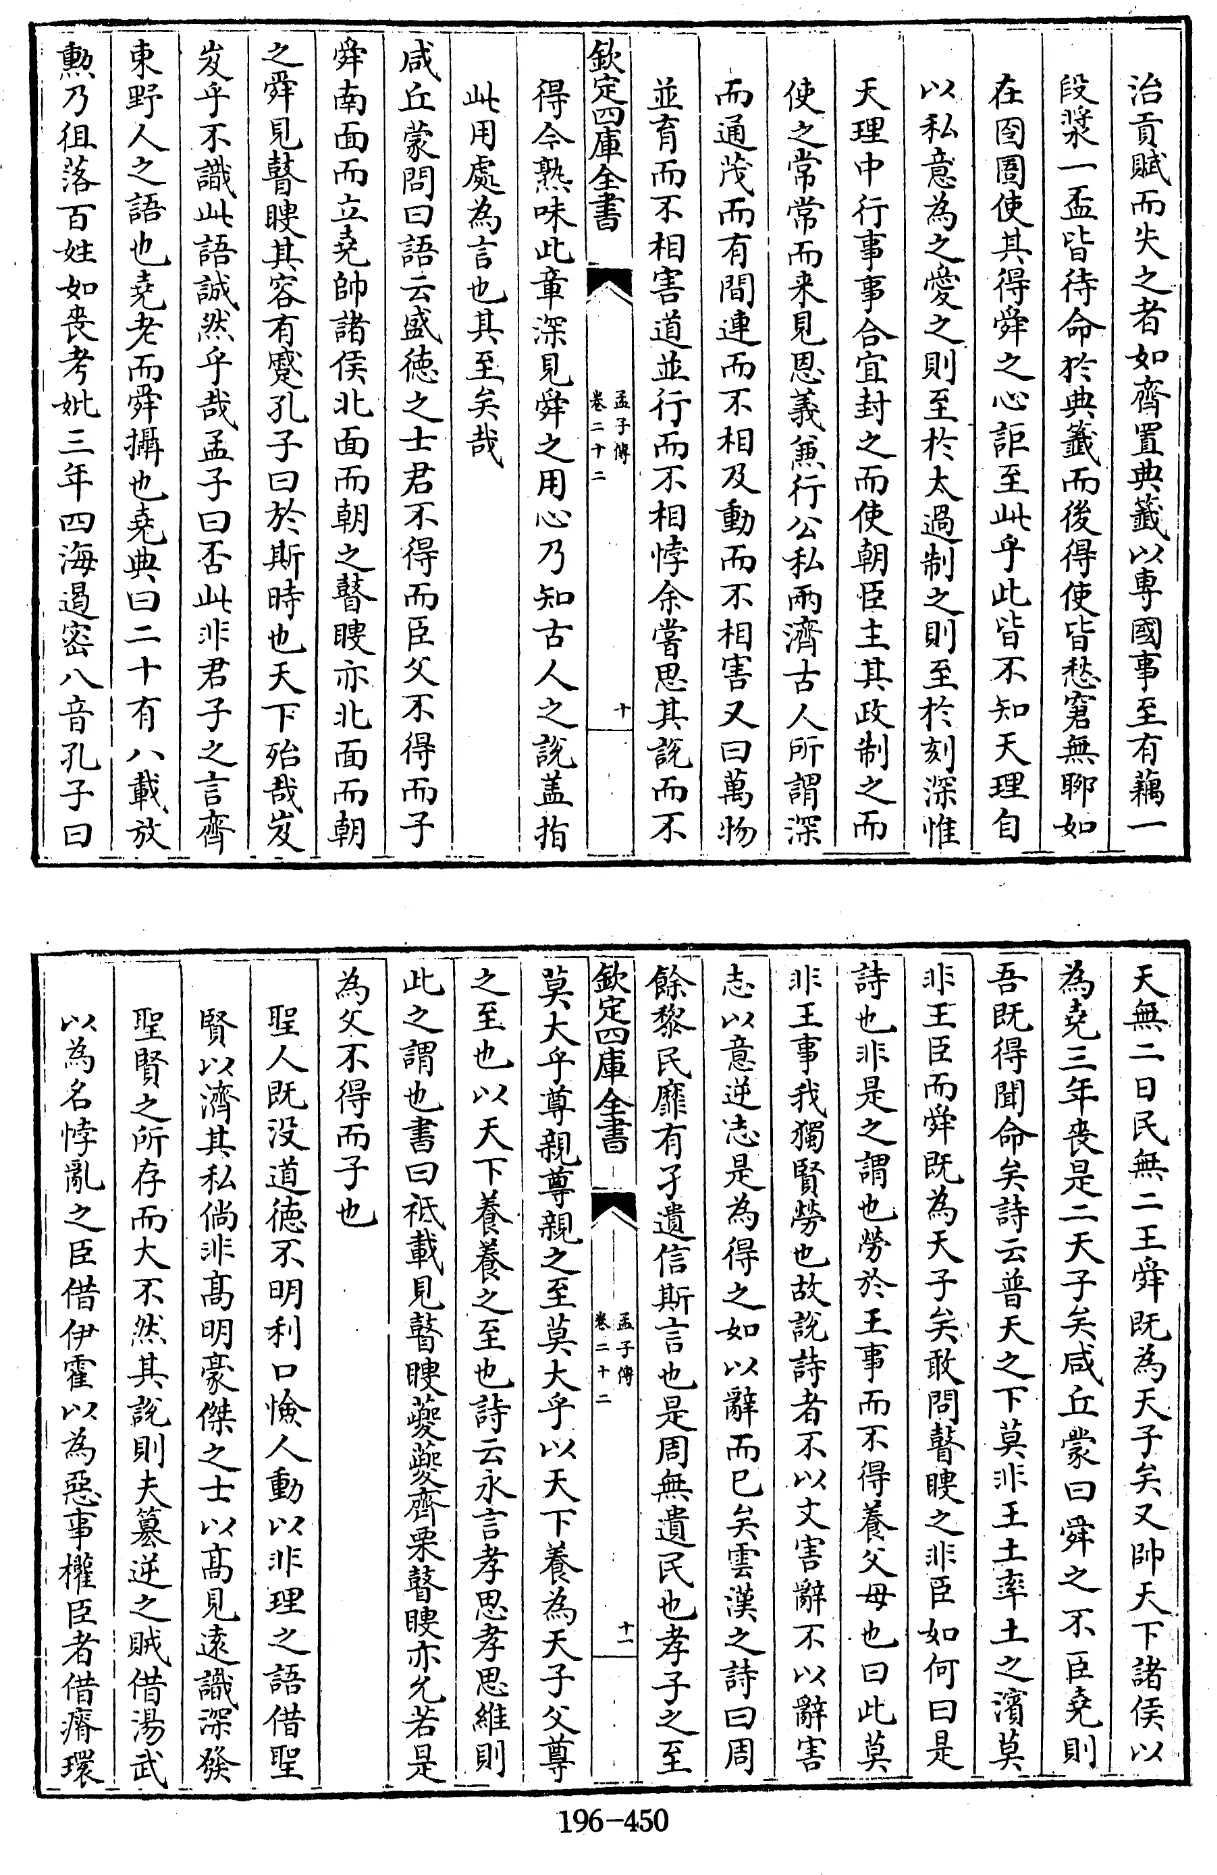 治貢賦而失之者如齊置典籖以專國事至有藕一
段漿一盃皆待命於典籖而後得使皆愁窘無聊如
在囹圄使其得舜之心詎至此乎此皆不知天理自
以私意為之愛之則至於太過制之則至於刻深惟
天理中行事事合宜封之而使朝臣主其政制之而
使之常常而来見恩義兼行公私兩濟古人所謂深
而通茂而有間連而不相及動而不相害又曰萬物
並育而不相害道並行而不相悖余嘗思其説而不
欽定四庫全書
孟子傳
卷二十二
十
得今熟味此章深見舜之用心乃知古人之説盖指
此用處為言也其至矣哉
咸丘蒙問曰語云盛德之士君不得而臣父不得而子
舜南面而立堯帥諸侯北面而朝之瞽瞍亦北面而朝
之舜見瞽瞍其容有蹙孔子曰於斯時也天下殆哉岌
岌乎不識此語誠然乎哉孟子曰否此非君子之言齊
東野人之語也堯老而舜攝也堯典曰二十有八載放
勲乃徂落百姓如喪考妣三年四海遏密八音孔子曰
天無二日民無二王舜既為天子矣又帥天下諸侯以
為堯三年喪是二天子矣咸丘蒙曰舜之不臣堯則
吾既得聞命矣詩云普天之下莫非王土率土之濱莫
非王臣而舜既為天子矣敢問瞽瞍之非臣如何曰是
詩也非是之謂也勞於王事而不得養父母也曰此莫
非王事我獨賢勞也故説詩者不以文害辭不以辭害
志以意逆志是為得之如以辭而已矣雲漢之詩曰周
餘黎民靡有孑遺信斯言也是周無遺民也孝子之至
欽定四庫全書
孟子傳
卷二十二
十一
莫大乎尊親尊親之至莫大乎以天下養為天子父尊
之至也以天下養養之至也詩云永言孝思孝思維則
此之謂也書曰祗載見瞽瞍夔夔齊栗瞽瞍亦允若是
為父不得而子也
聖人既没道德不明利口憸人動以非理之語借聖
賢以濟其私倘非高明豪傑之士以高見遠識深發
聖賢之所存而大不然其説則夫簒逆之賊借湯武
以為名悖亂之臣借伊霍以為惡事權臣者借瘠環
196-450